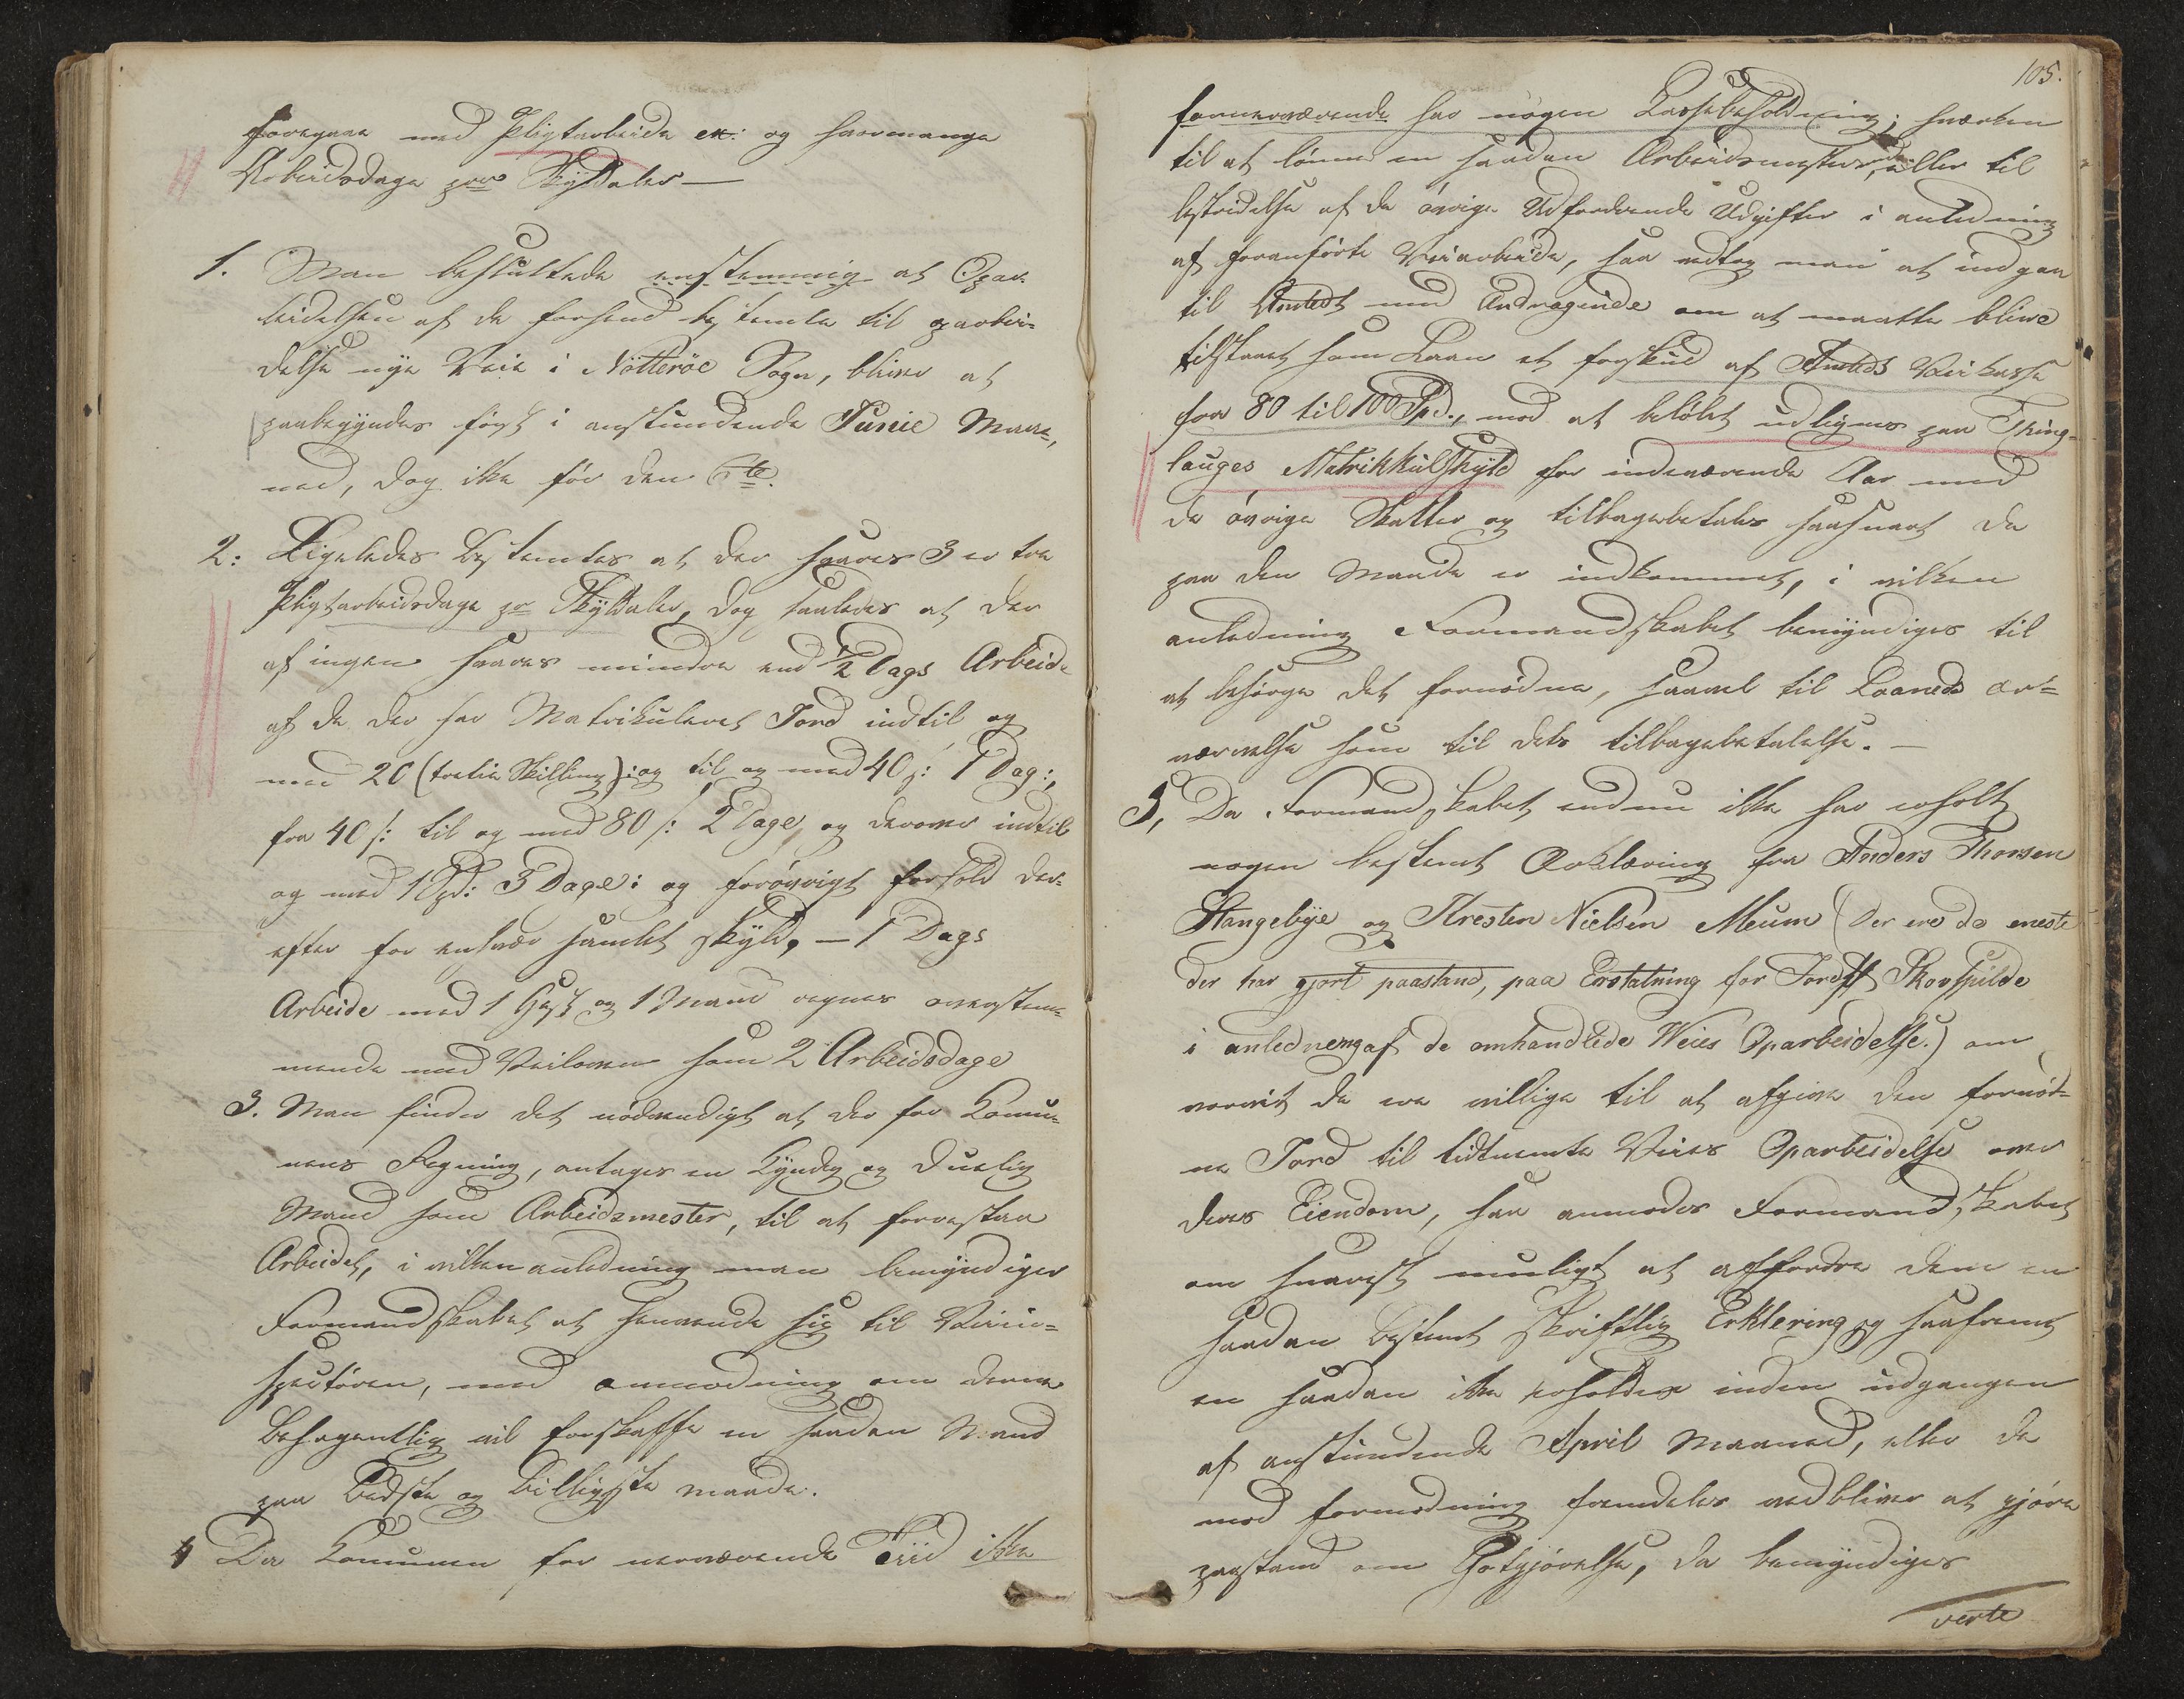 foregaae med Pligtarbeide etc: og hvormange
Arbeidsdage pro Skyldaler —
1. Man besluttede enstemmig at Opar-
beidelsen af de forhend bestemte til oparbei-
delse nye Veie i Nötteröe Sogn, bliver at
paabegyndes först i anstundende Junie Maa-
ned, dog ikke för den 6te
2: Ligeledes bestemtes at der svares 3 er tre
Pligtarbeidsdage pr Skyldaler, dog saaledes at der
af ingen svares mindre end 1/2 Dags Arbeide
af de der har Matrikuleret Jord indtil og
med 20 (tretie Skilling): og til og med 40 s: 1 Dag:,
fra 40 s: til og med 80 s: 2 Dage, og derover indtil
og med 1 Spd: 3 Dage: og forövrigt forhold der-
efter for enhver samlet skyld, — 1 Dags
Arbeide med 1 Hest og 1 Mand regnes overstem-
mende med Veiloven som 2 Arbeidsdage
3. Man finder det nödvendigt at der for Komu-
nens Regning, antages en kyndig og duelig
Mand som Arbeidsmester, til at forrestaa
Arbeidet, i vilken anledning man bemyndiger
Formandskabet at henvende sig til Veiin-
spektören, med anmodning om denne
behagentlig vil forskaffe en saadan Mand
paa bedste og billigste maade.
4 Da Komunen for nerværende Tiid ikke
105.
fornerværende har nogen Kassebeholdning; hverken
til at lönne en saadan Arbeidsmester, eller til
bestridelse af de övrige Udfordrende Udgifter i anledning
af foranförte Veiarbeide, saa vedtog man at indgaa
til Amtet med Andragende om at maatte blive
tilstaaet som Laan et forskud af Amtets Veikasse
fra 80 til 100 Spd., mod at belöbet udlignes paa Thing-
lauges Matrikkulskyld for indeværende Aar med
de övrige Skatter og tilbagebetales saasnart de
paa den Maade er indkommet, i vilken
anledning Formandskabet bemyndiges til
at besörge det fornödne, saavel til Laanets er-
værvelse som til dets tilbagebetalelse. —
5, Da Formandskabet endnu ikke har erholt
nogen bestemt Erklæring fra Anders Thorsen
Stangebye og Kresten Nielsen Meum (der ere de eneste
der har gjort paastand, paa Erstatning for Jord & Skovspilde
i anledning af de omhandlede Weies Oparbeidelse.) om
vorvit de ere villige til at afgive den fornöd-
ne Jord til tidtnemte Veies Oparbeidelse over
deres Eiendom, saa anmodes Formandskabet
om snarest muligt at affordre dem en
saadan bestemt skriftlig Erklering og saafremt
en saadan ikke erholdes inden udgangen
af anstundende April Maaned, eller de
mod formodning fremdeles vedbliver at gjöre
paastand om Godtgjörelse, da bemyndiges
verte